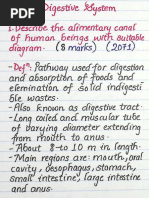 Digestive System
1. Describe the alimentary canal
of human beings with suitable
diagram. (8 marks) (2071)
- Defⁿ: Pathway used for digestion
and absorption of foods and
elemination of solid indigesti
ble wastes.
- Also known as digestive tract.
- Long coiled and muscular tube
of varying diameter extending
from mouth to anus.
- About 8 to 10 m in length.
- Main regions are: mouth, oral
cavity, oesophagus, stomach,
small intestine, large intestine
and anus.